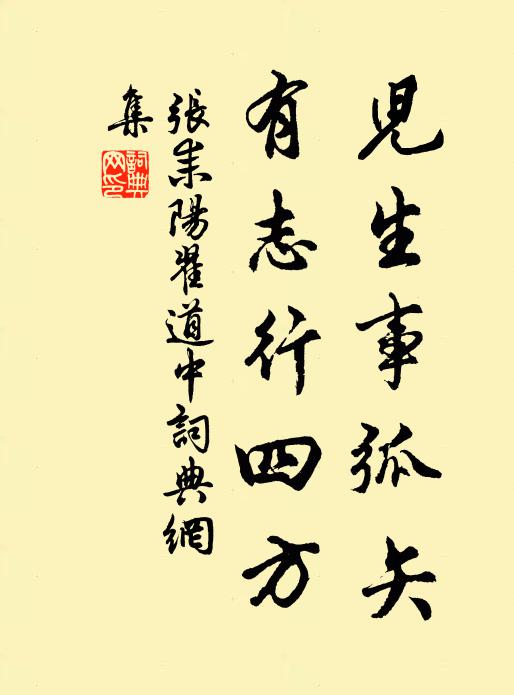 兒生事弧矢
有志行四方
張耒陽翟道中詞典網
集
詞典网印